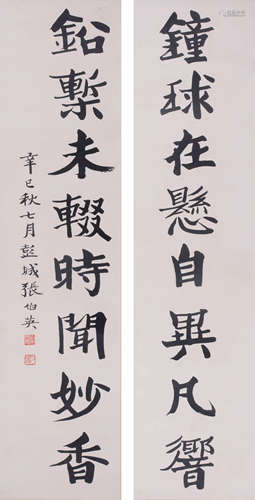 鐘球在懸自異凡響
鉛槧未輟時聞妙香
辛巳秋七月彭城張伯英